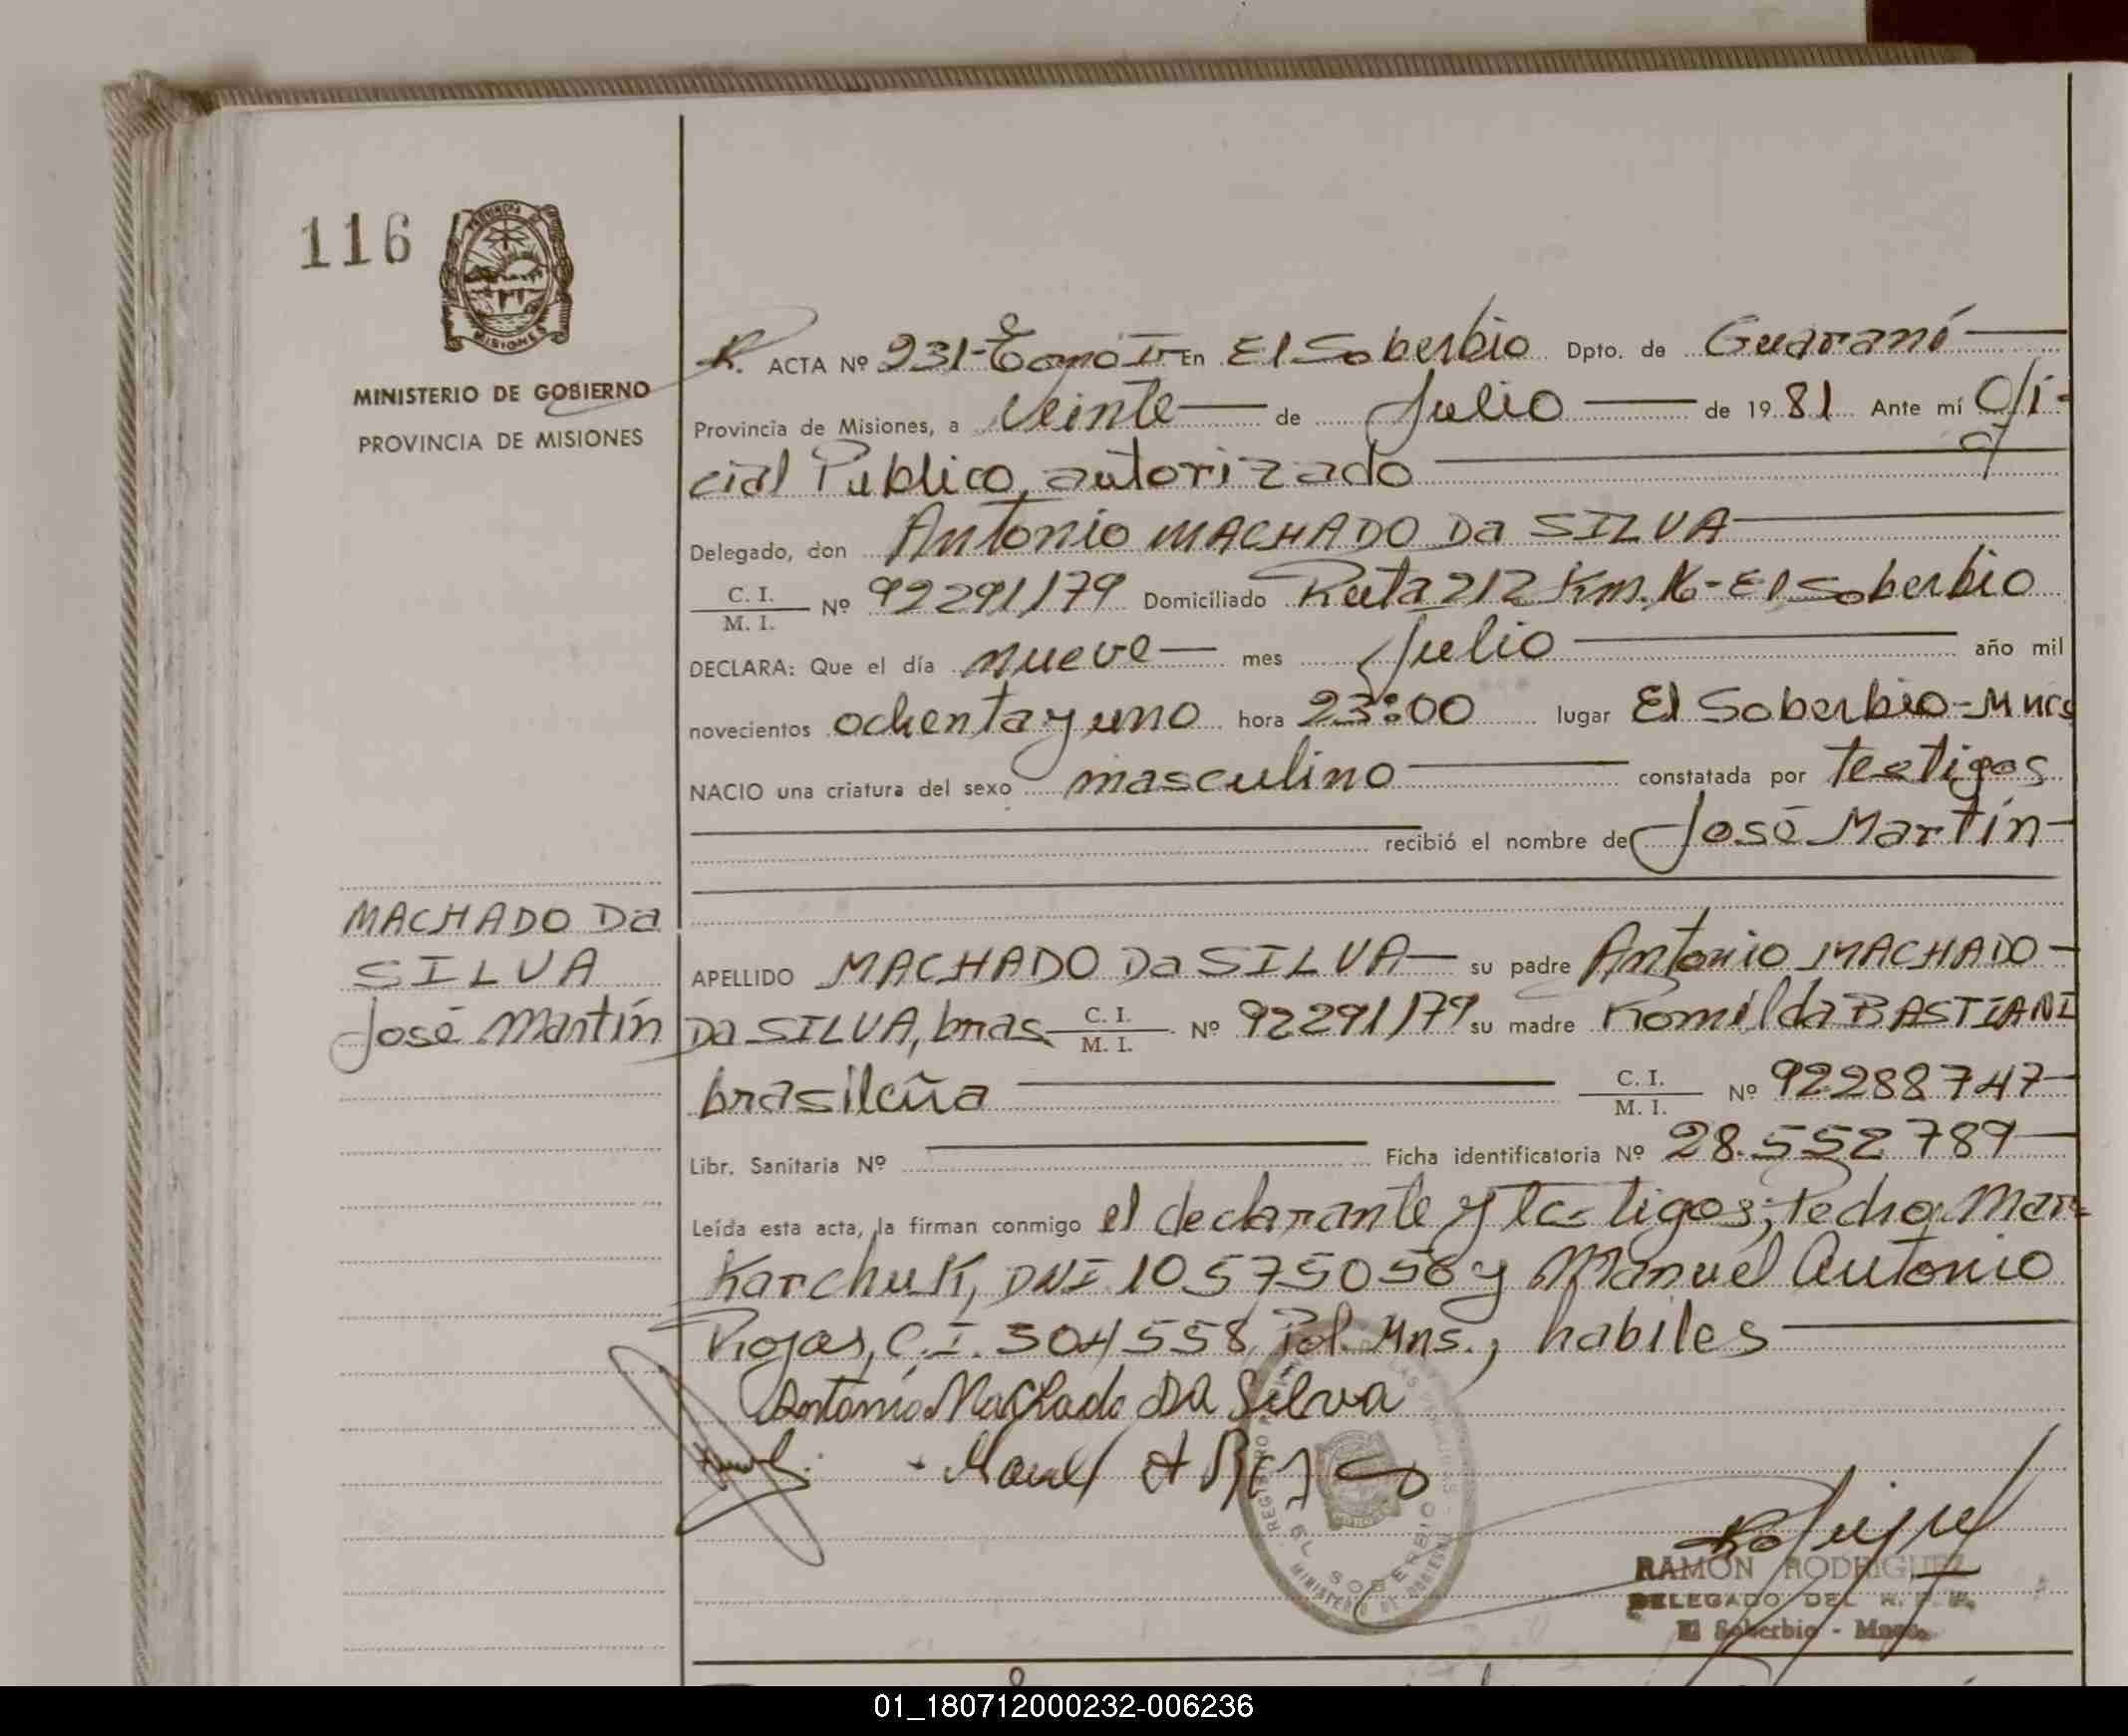 116
MINISTERIO DE GOBIERNO
PROVINCIA DE MISIONES
R. ACTA Nº 231-Tomo II En El Soberbio Dpto. de Guaraní
Provincia de Misiones, a Veinte de Julio de 1981 Ante mí Ofi-
cial Publico, autorizado
Delegado, don Antonio MACHADO Da SILVA
C. I.
M. I. Nº 92291179 Domiciliado Ruta 212 Km. 16 - El Soberbio
DECLARA: Que el día nueve mes Julio año mil
novecientos ochenta y uno hora 23:00 lugar El Soberbio-Mnes
NACIO una criatura del sexo masculino constatada por testigos
recibió el nombre de José Martín
MACHADO Da
SILVA
José Martín
APELLIDO MACHADO Da SILVA su padre Antonio MACHADO
Da SILVA, bras C. I. M. I. Nº 92291179 su madre Romilda BASTIANI
brasileña C. I. M. I. Nº 92288747
Libr. Sanitaria Nº Ficha identificatoria Nº 28.552789
Leída esta acta, la firman conmigo el declarante y testigos; Pedro Mar=
Karchuk, DNI 10575056 y Manuel Antonio
Rojas, C.I. 304558, Pol. Mns.; habiles
Antonio Machado Da Silva
Manuel A Rojas
REGISTRO
EL SOBERBIO
MINISTERIO DE GOBIERNO
RAMON RODRIGUEZ
DELEGADO DEL R. P. P.
El Soberbio - Mnes.
01_180712000232-006236